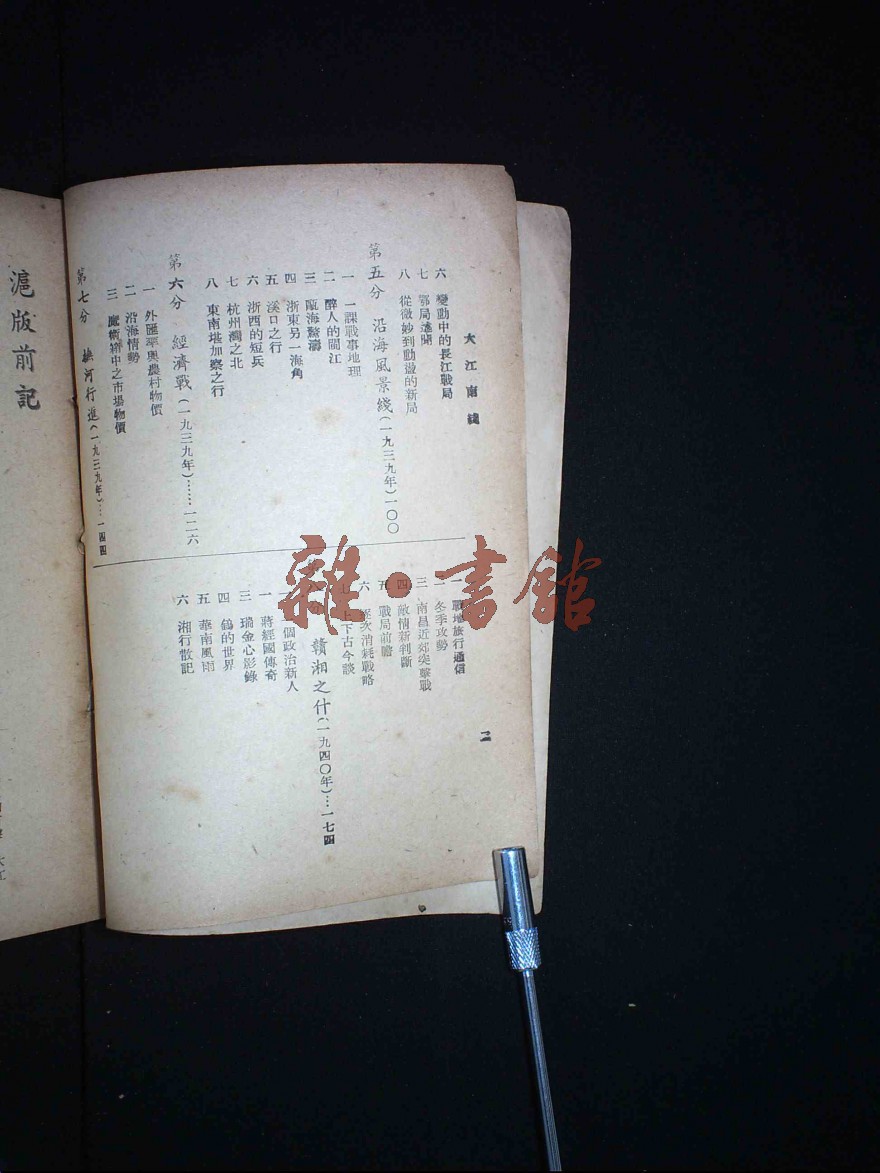 大江南線
二
六　變動中的長江戰局
七　鄂局遠開
八　從微妙到動盪的新局
第五分　沿海風景綫(一九三九年)一〇〇
一　一課戰事地理
二　醉人的閩江
三　甌海鰲濤
四　浙東另一海角
五　溪口之行
六　浙西的短兵
七　杭州灣之北
八　東南堪加察之行
第六分　經濟戰(一九三九年)……一二六
一　外匯率與農村物價
二　沿海情勢
三　魔術繹中之市場物價
第七分　撫河行進(一九三九年)…一四四
一　戰地旅行通信
二　冬季攻勢
三　南昌近郊突擊戰
四　敵情新判斷
五　戰局前瞻
六　逐次消耗戰略
七　上下古今談
贛湘之什(一九四〇年)…一七四
個政治新人
一　蔣經國傳奇
三　瑞金心影錄
四　鶴的世界
五　華南風雨
六　湘行散記
滬版前記
雜·書館